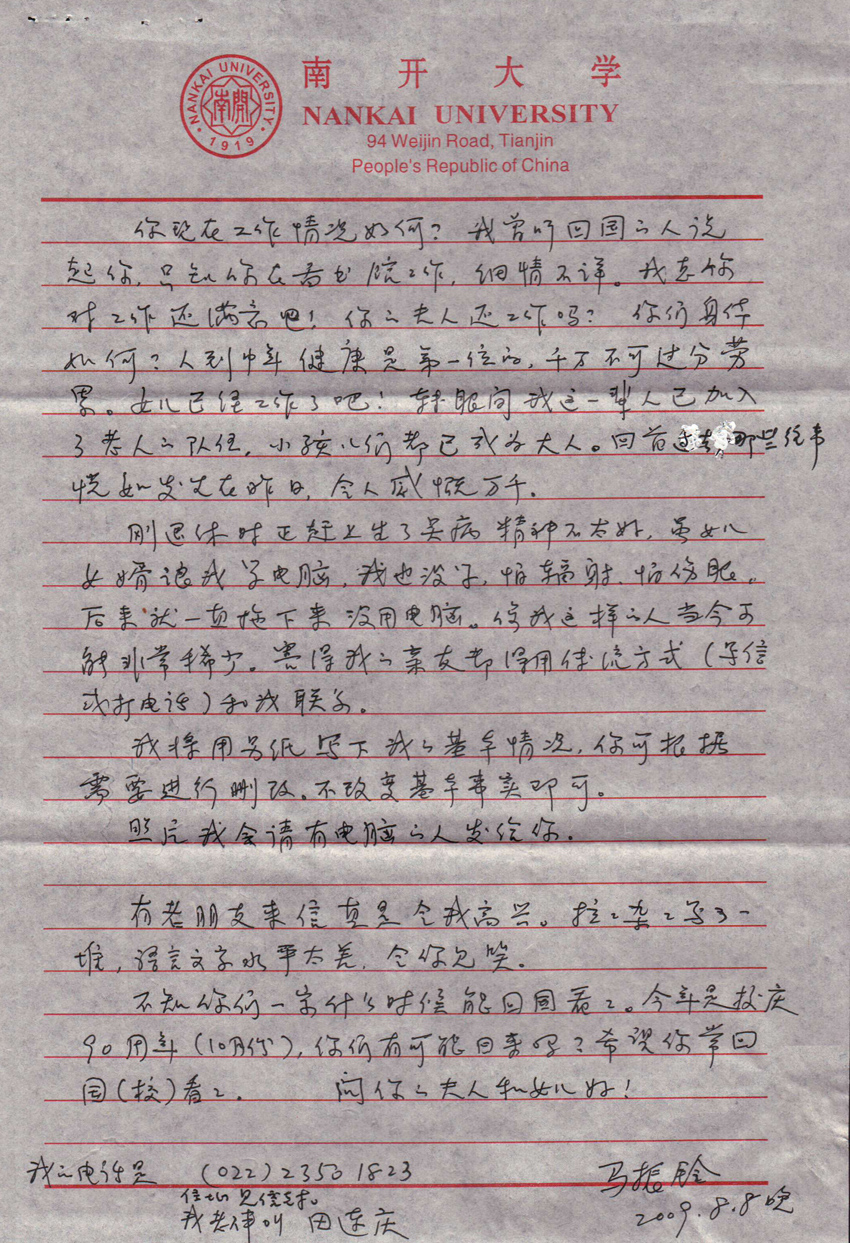 NANKAI UNIVERSITY
南開
1919
南开大学
NANKAI UNIVERSITY
94 Weijin Road, Tianjin
People's Republic of China
你现在工作情况如何？我曾听回国的人说
起你，只知你在 工作，细情不详。我想你
对工作还满意吧！你的夫人还工作吗？你们身体
如何？人到中年健康是第一位的，千万不可过分劳
累。女儿已经工作了吧！转眼间我这一辈人已加入
了老人的队伍，小孩儿们都已成为大人。回首过去那些往事
恍如发生在昨日，令人感慨万千。
刚退休时正赶上生了 病精神不太好，虽女儿
女婿让我学电脑，我也没学，怕辐射、怕伤眼。
后来就一直拖下来没用电脑。像我这样的人当今可
能非常稀少。害得我的亲友都得用传统方式（写信
或打电话）和我联系。
我将用另纸写下我的基本情况，你可根据
需要进行删改。不改变基本事实即可。
照片我会请有电脑的人发给你。
有老朋友来信真是令我高兴。拉々杂々写了一
堆，语言文字水平太差，令你见笑。
不知你们一家什么时候能回国看々。今年是校庆
90周年（10月份），你们有可能回来吗？希望你常回
国（校）看々。 问你的夫人和女儿好！
我的电话是 （022）23501823
住址见信封。
我老伴叫 田连庆
马振
2009.8.8晚